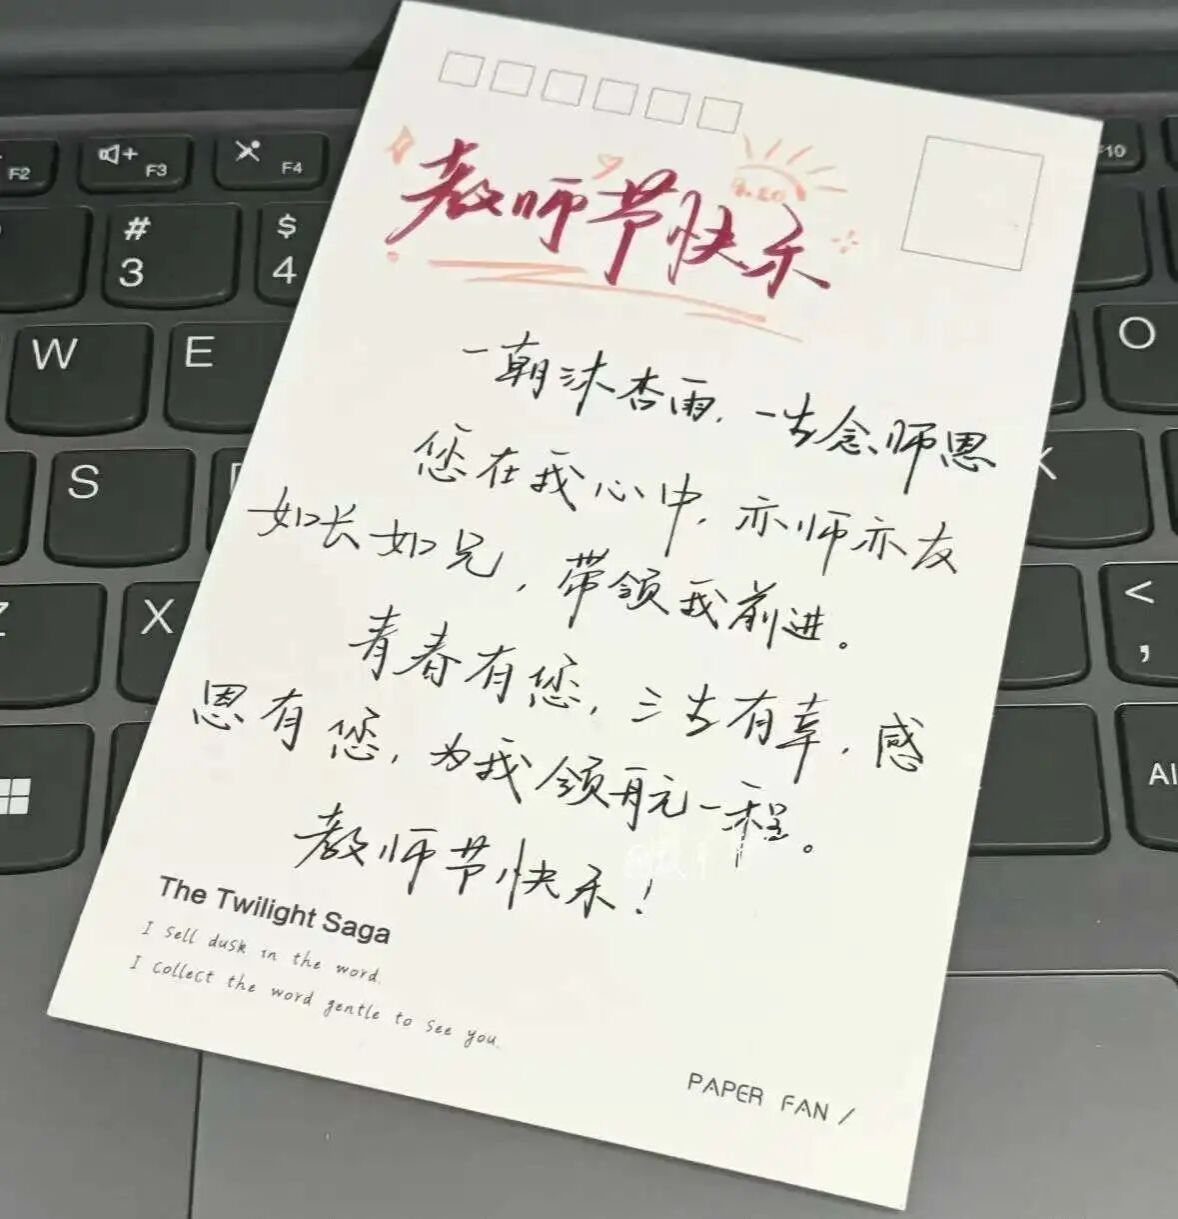 教师节快乐
一朝沐杏雨,一生念师恩
您在我心中,亦师亦友
如长如兄,带领我前进。
青春有您,三生有幸,感
恩有您,为我领航一程。
教师节快乐!
The Twilight Saga
I sell dusk in the word.
I collect the word gentle to see you.
PAPER FAN /
F2
F3
F4
F10
#
3
$
4
W
E
O
S
K
Z
X
<
,